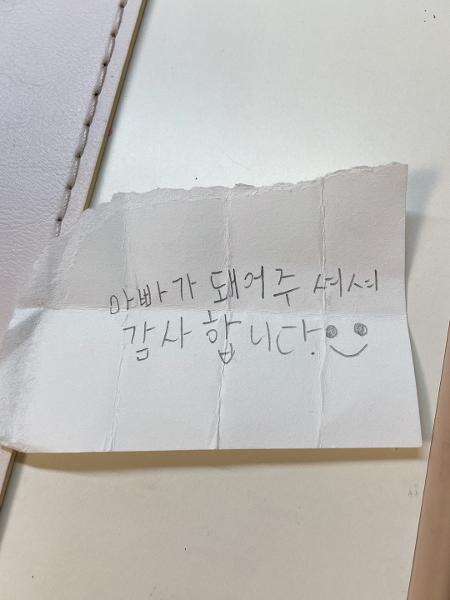 아빠가 돼어주셔서
감사합니다.